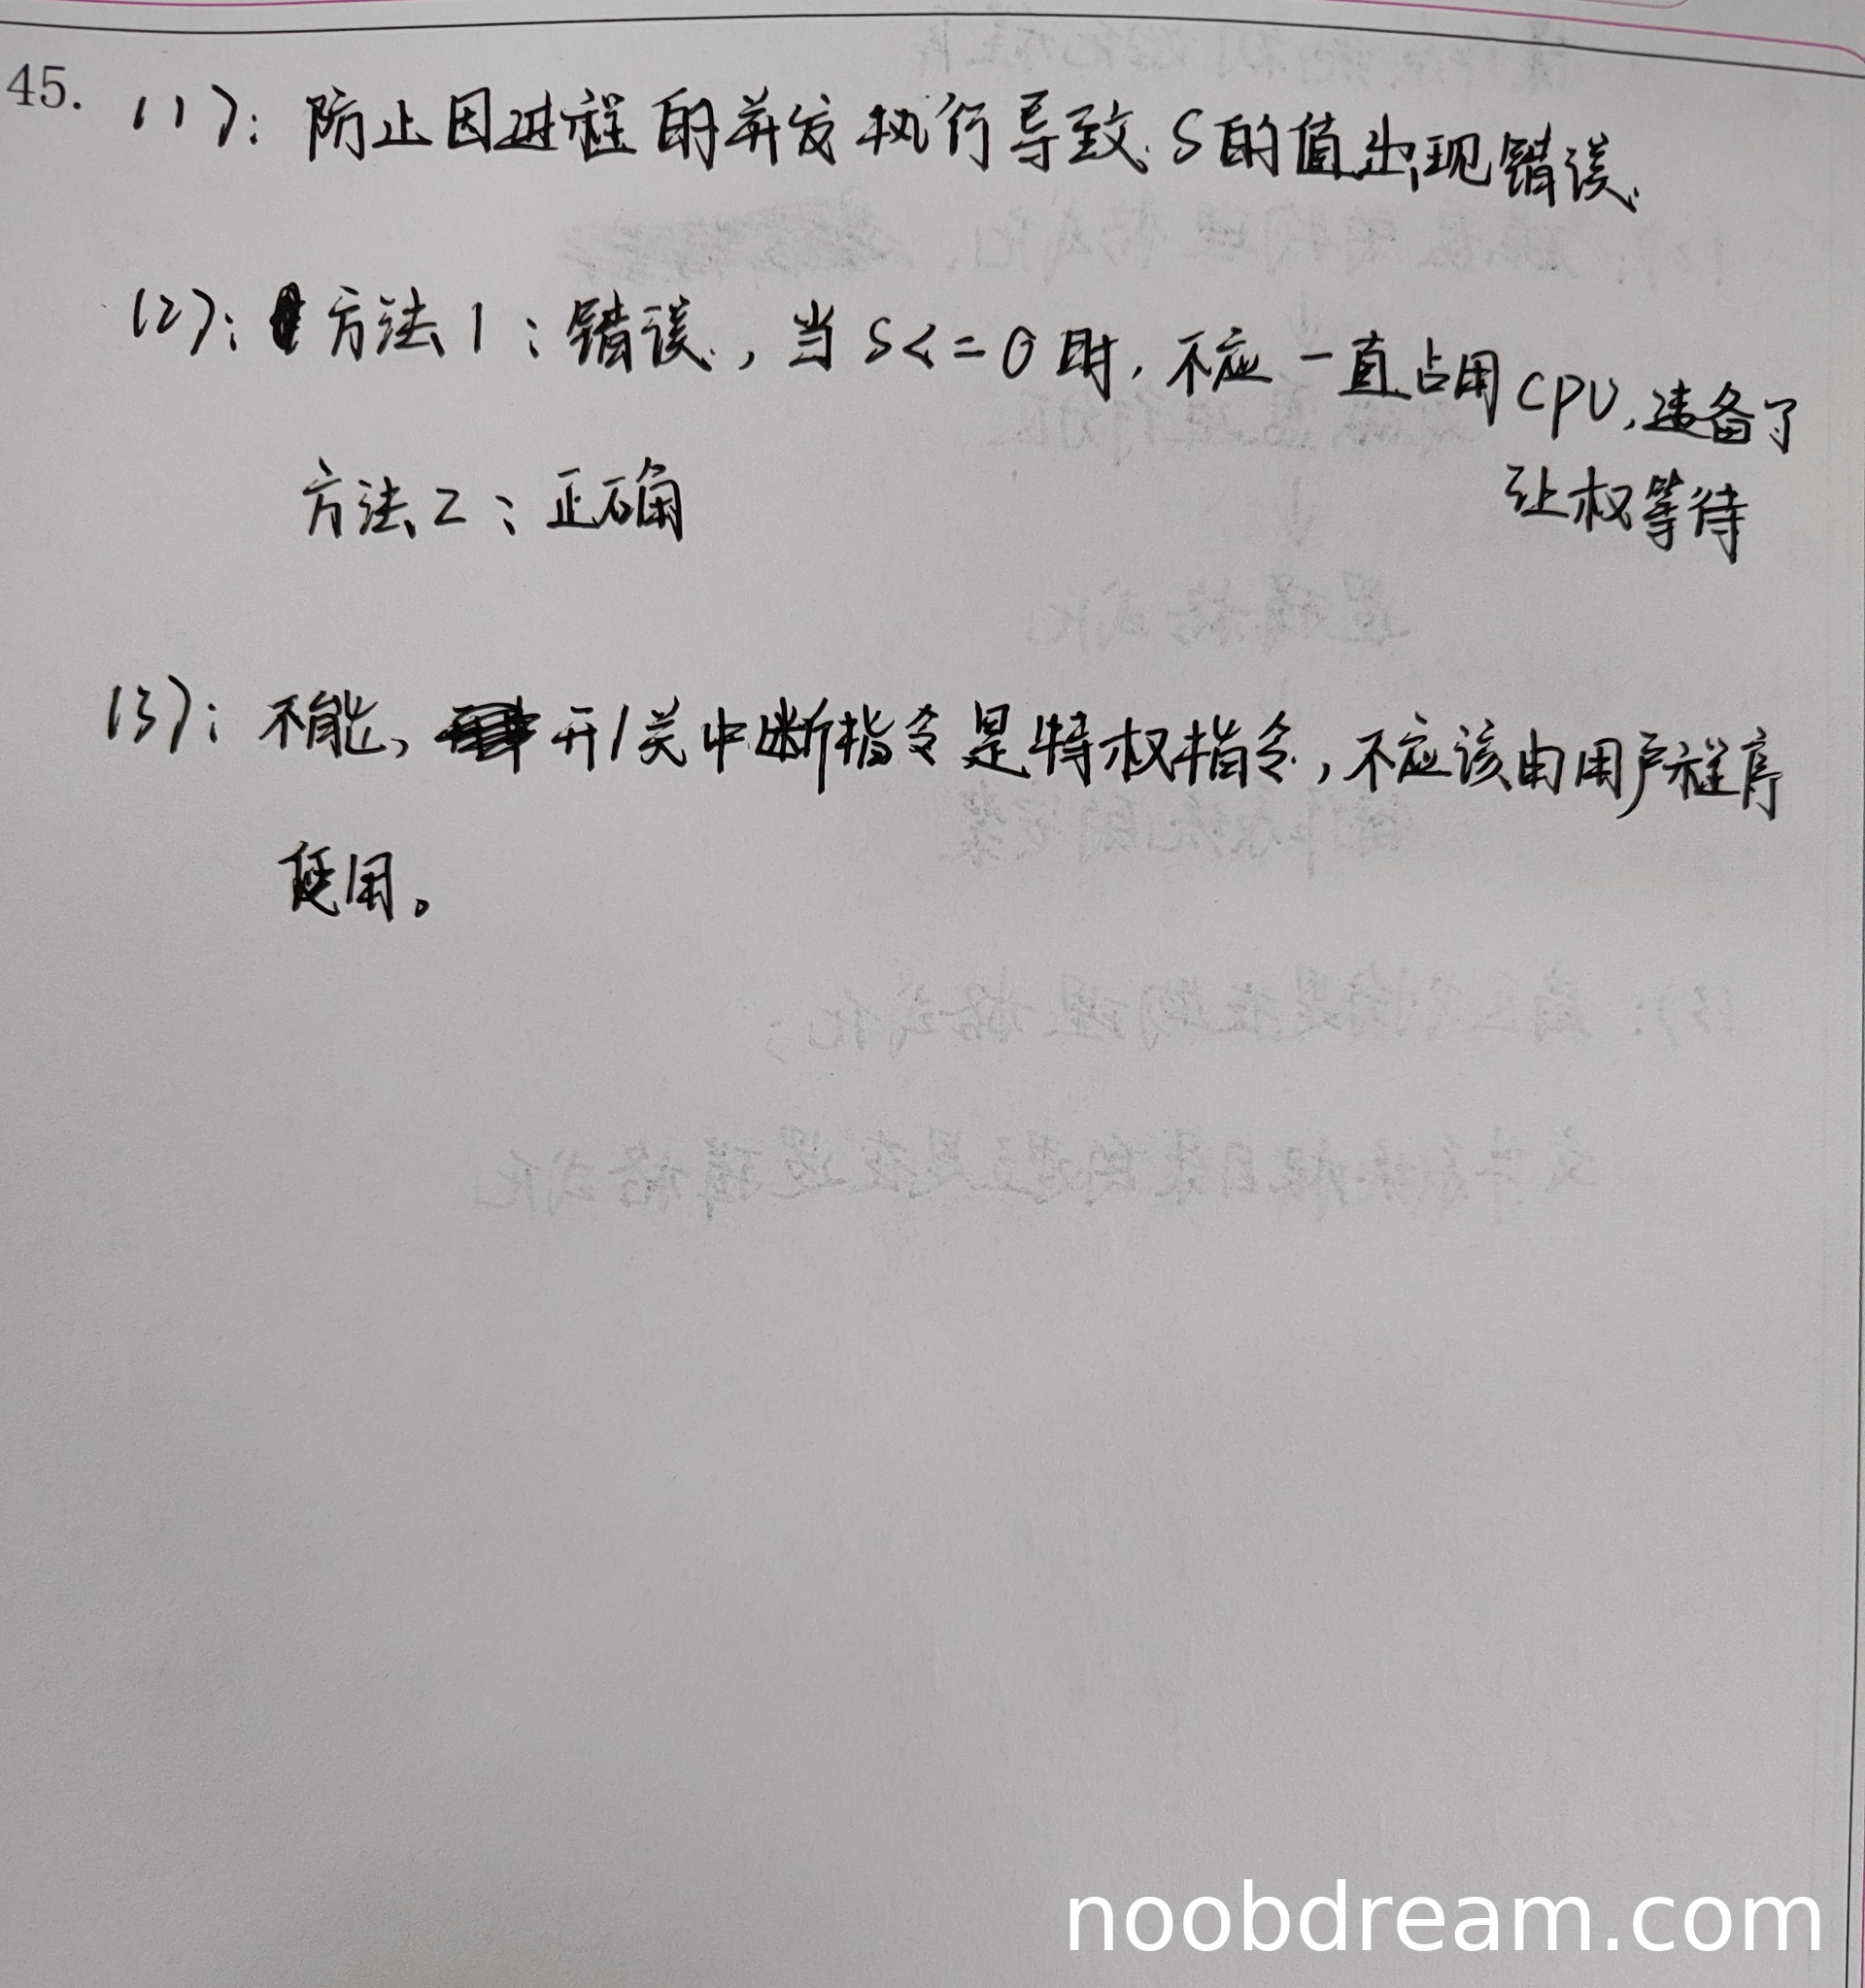 45. (1): 防止因进程的并发执行导致S的值出现错误.
(2): 方法1: 错误, 当S<=0时, 不应一直占用CPU, 违备了
让权等待
方法2: 正确
(3): 不能, 开/关中断指令是特权指令, 不应该由用户程序
使用。
noobdream.com